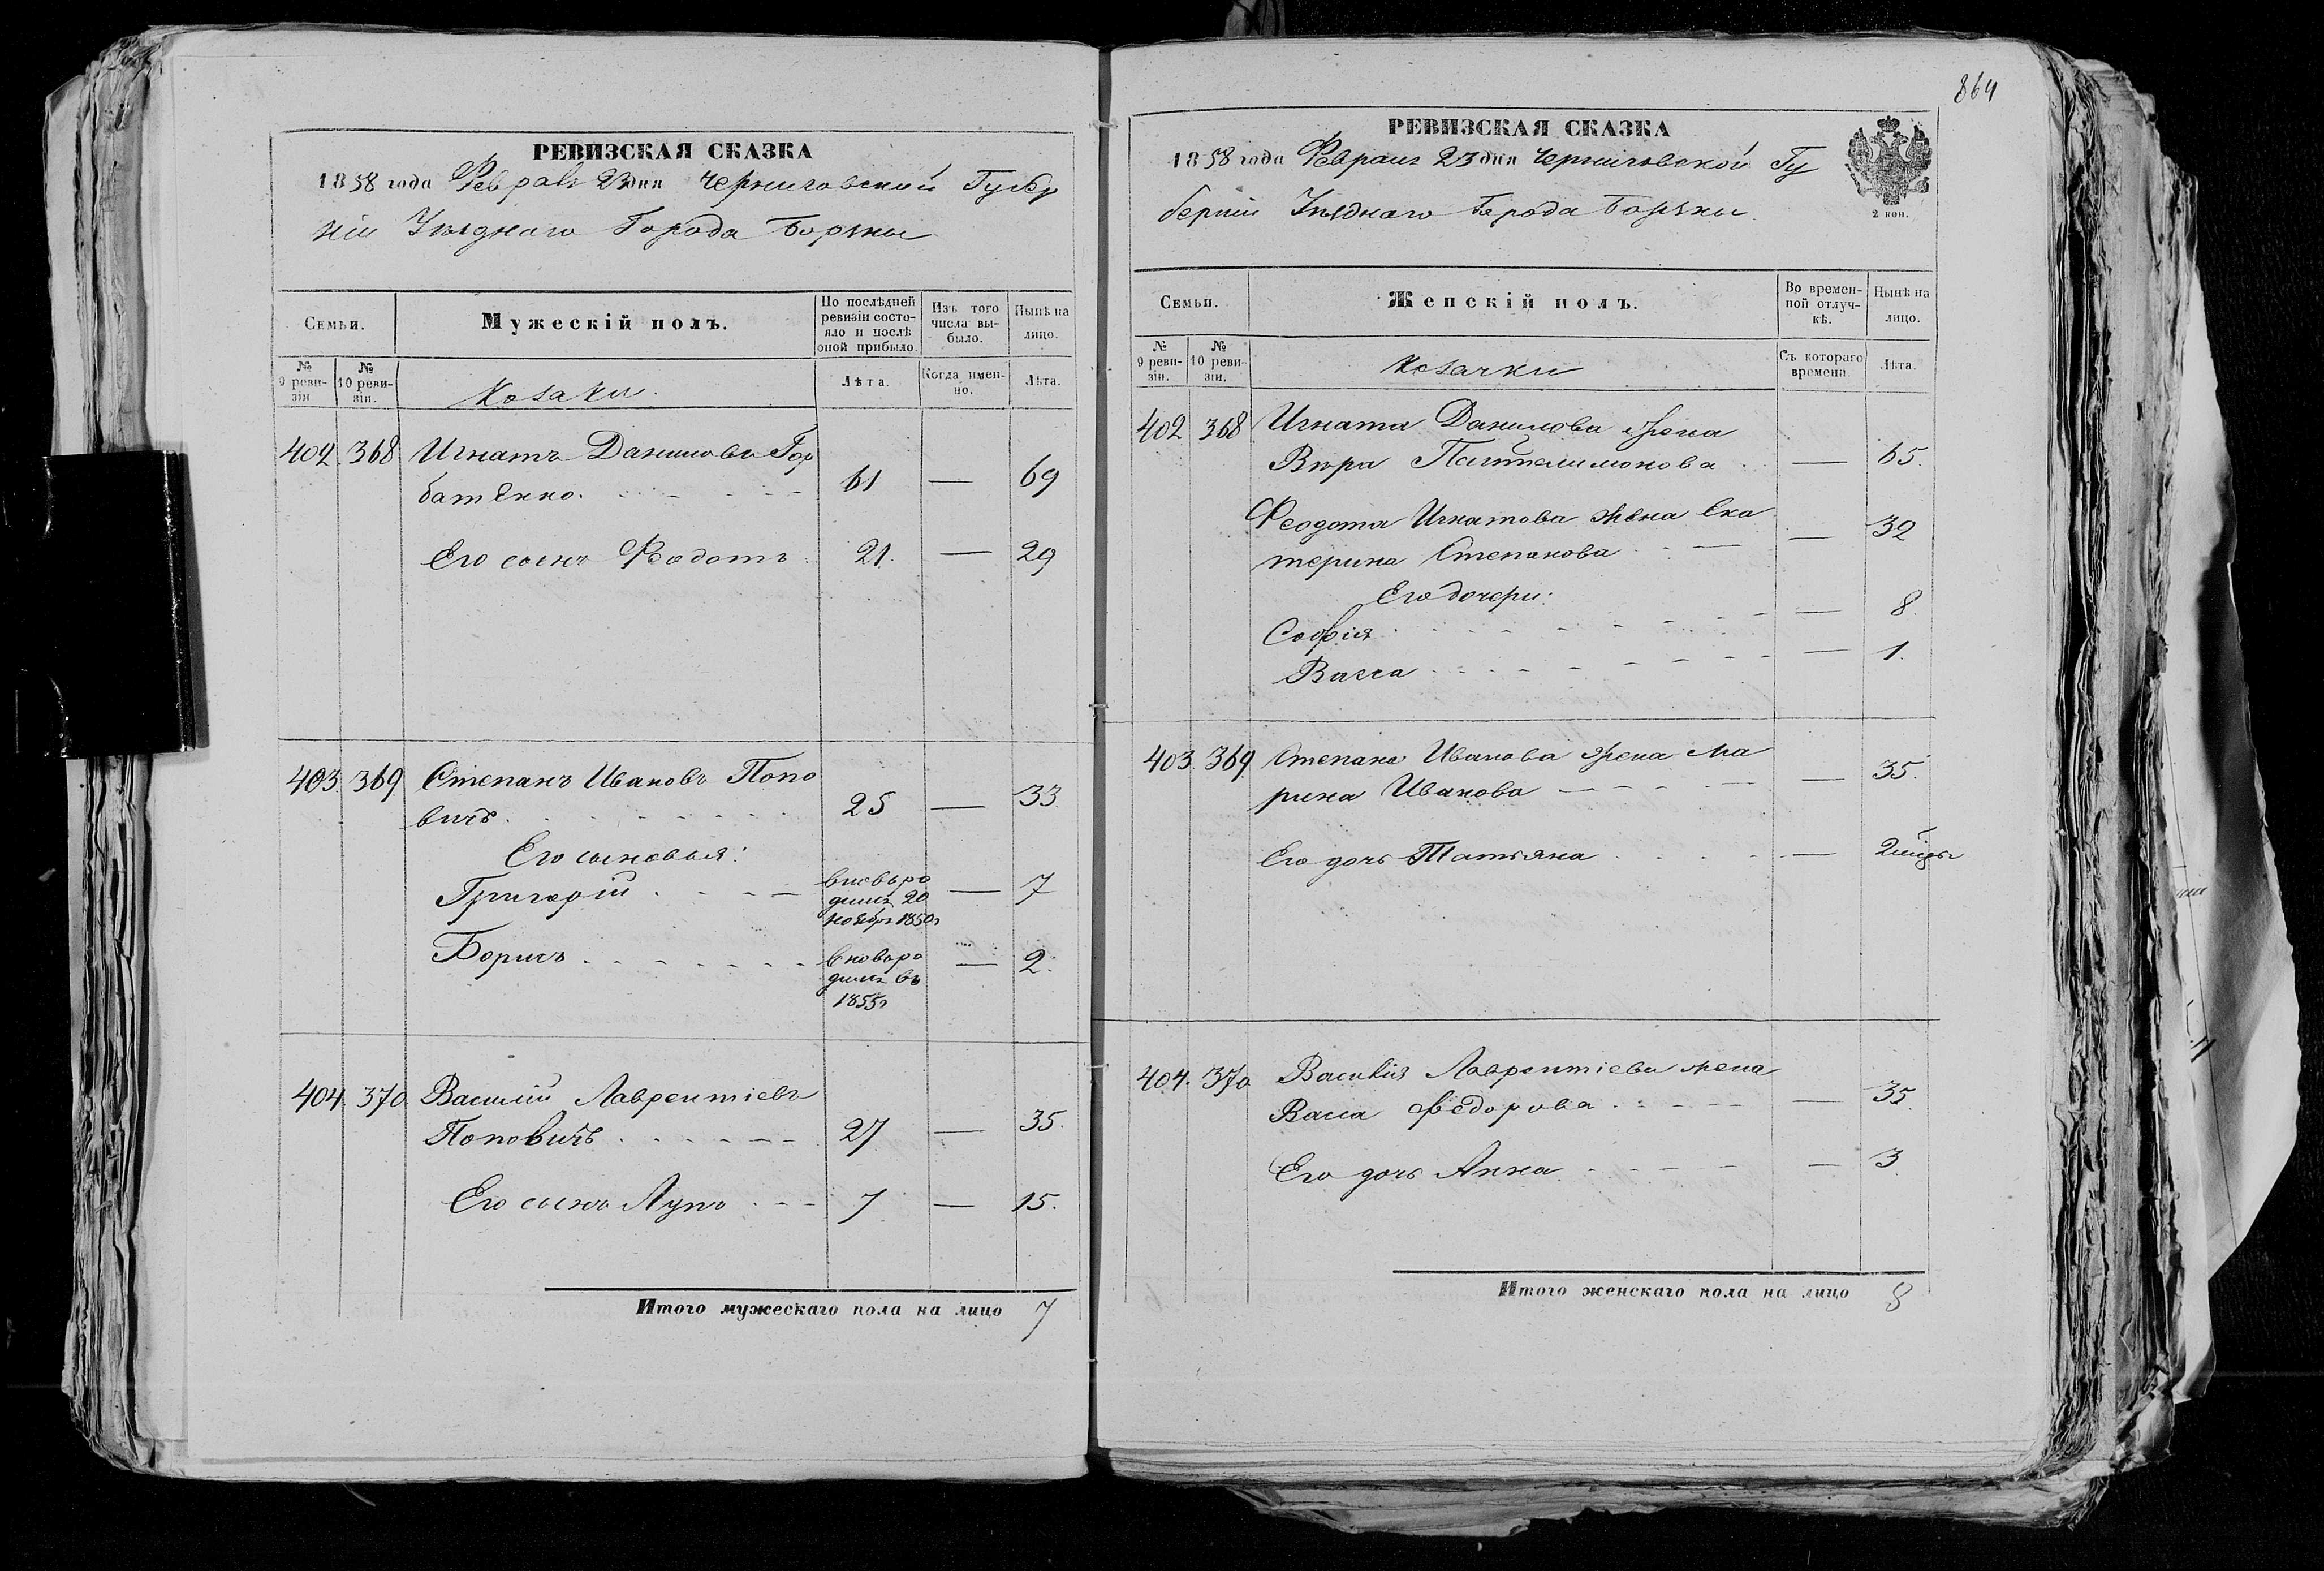 РЕВИЗСКАЯ СКАЗКА
1858 года Февраля 23 дня Черниговской Губер
ніи Уѣзднаго Города Борзны
Семьи.
Мужескій полъ.
По послѣдней ревизіи состояло и послѣ оной прибыло.
Изъ того числа выбыло.
Нынѣ на лицо.
№ 9 ревизіи
№ 10 ревизіи.
Козаки.
Лѣта.
Когда именно.
Лѣта.
402. 368 Игнатъ Даниловъ Гор
батенко. 61 — 69
Его сынъ Федотъ 21. — 29
403. 369. Степанъ Ивановъ Попо
вичъ. 25 — 33
Его сыновья:
Григорій вновь ро — 7
дился 20
Ноября 1850г
Борисъ вновь ро — 2.
дился въ
1855г
404. 370 Василій Лаврентіевъ
Поповичъ 27 — 35.
Его сынъ Лупъ 7 — 15.
Итого мужескаго пола на лицо 7
864
РЕВИЗСКАЯ СКАЗКА
1858 года Февраля 23 дня Черниговской Гу
берніи Уѣзднаго Города Борзны.
2 коп.
Семьи.
Женскій полъ.
Во временной отлучкѣ.
Нынѣ на лицо.
№ 9 ревизіи.
№ 10 ревизіи.
Козачки
Съ котораго времени.
Лѣта.
402 368 Игната Данилова жена
Вѣра Пантелимонова — 65.
Феодота Игнатова жена Ека
терина Степанова — 32
Его дочери:
Софія — 8.
Васса — 1.
403. 369 Степана Иванова жена Ма
рина Иванова — 35.
Его дочь Татьяна — 2
404. 370 Василія Лаврентіева жена
Васса Федорова — 35.
Его дочь Анна — 3
Итого женскаго пола на лицо 8